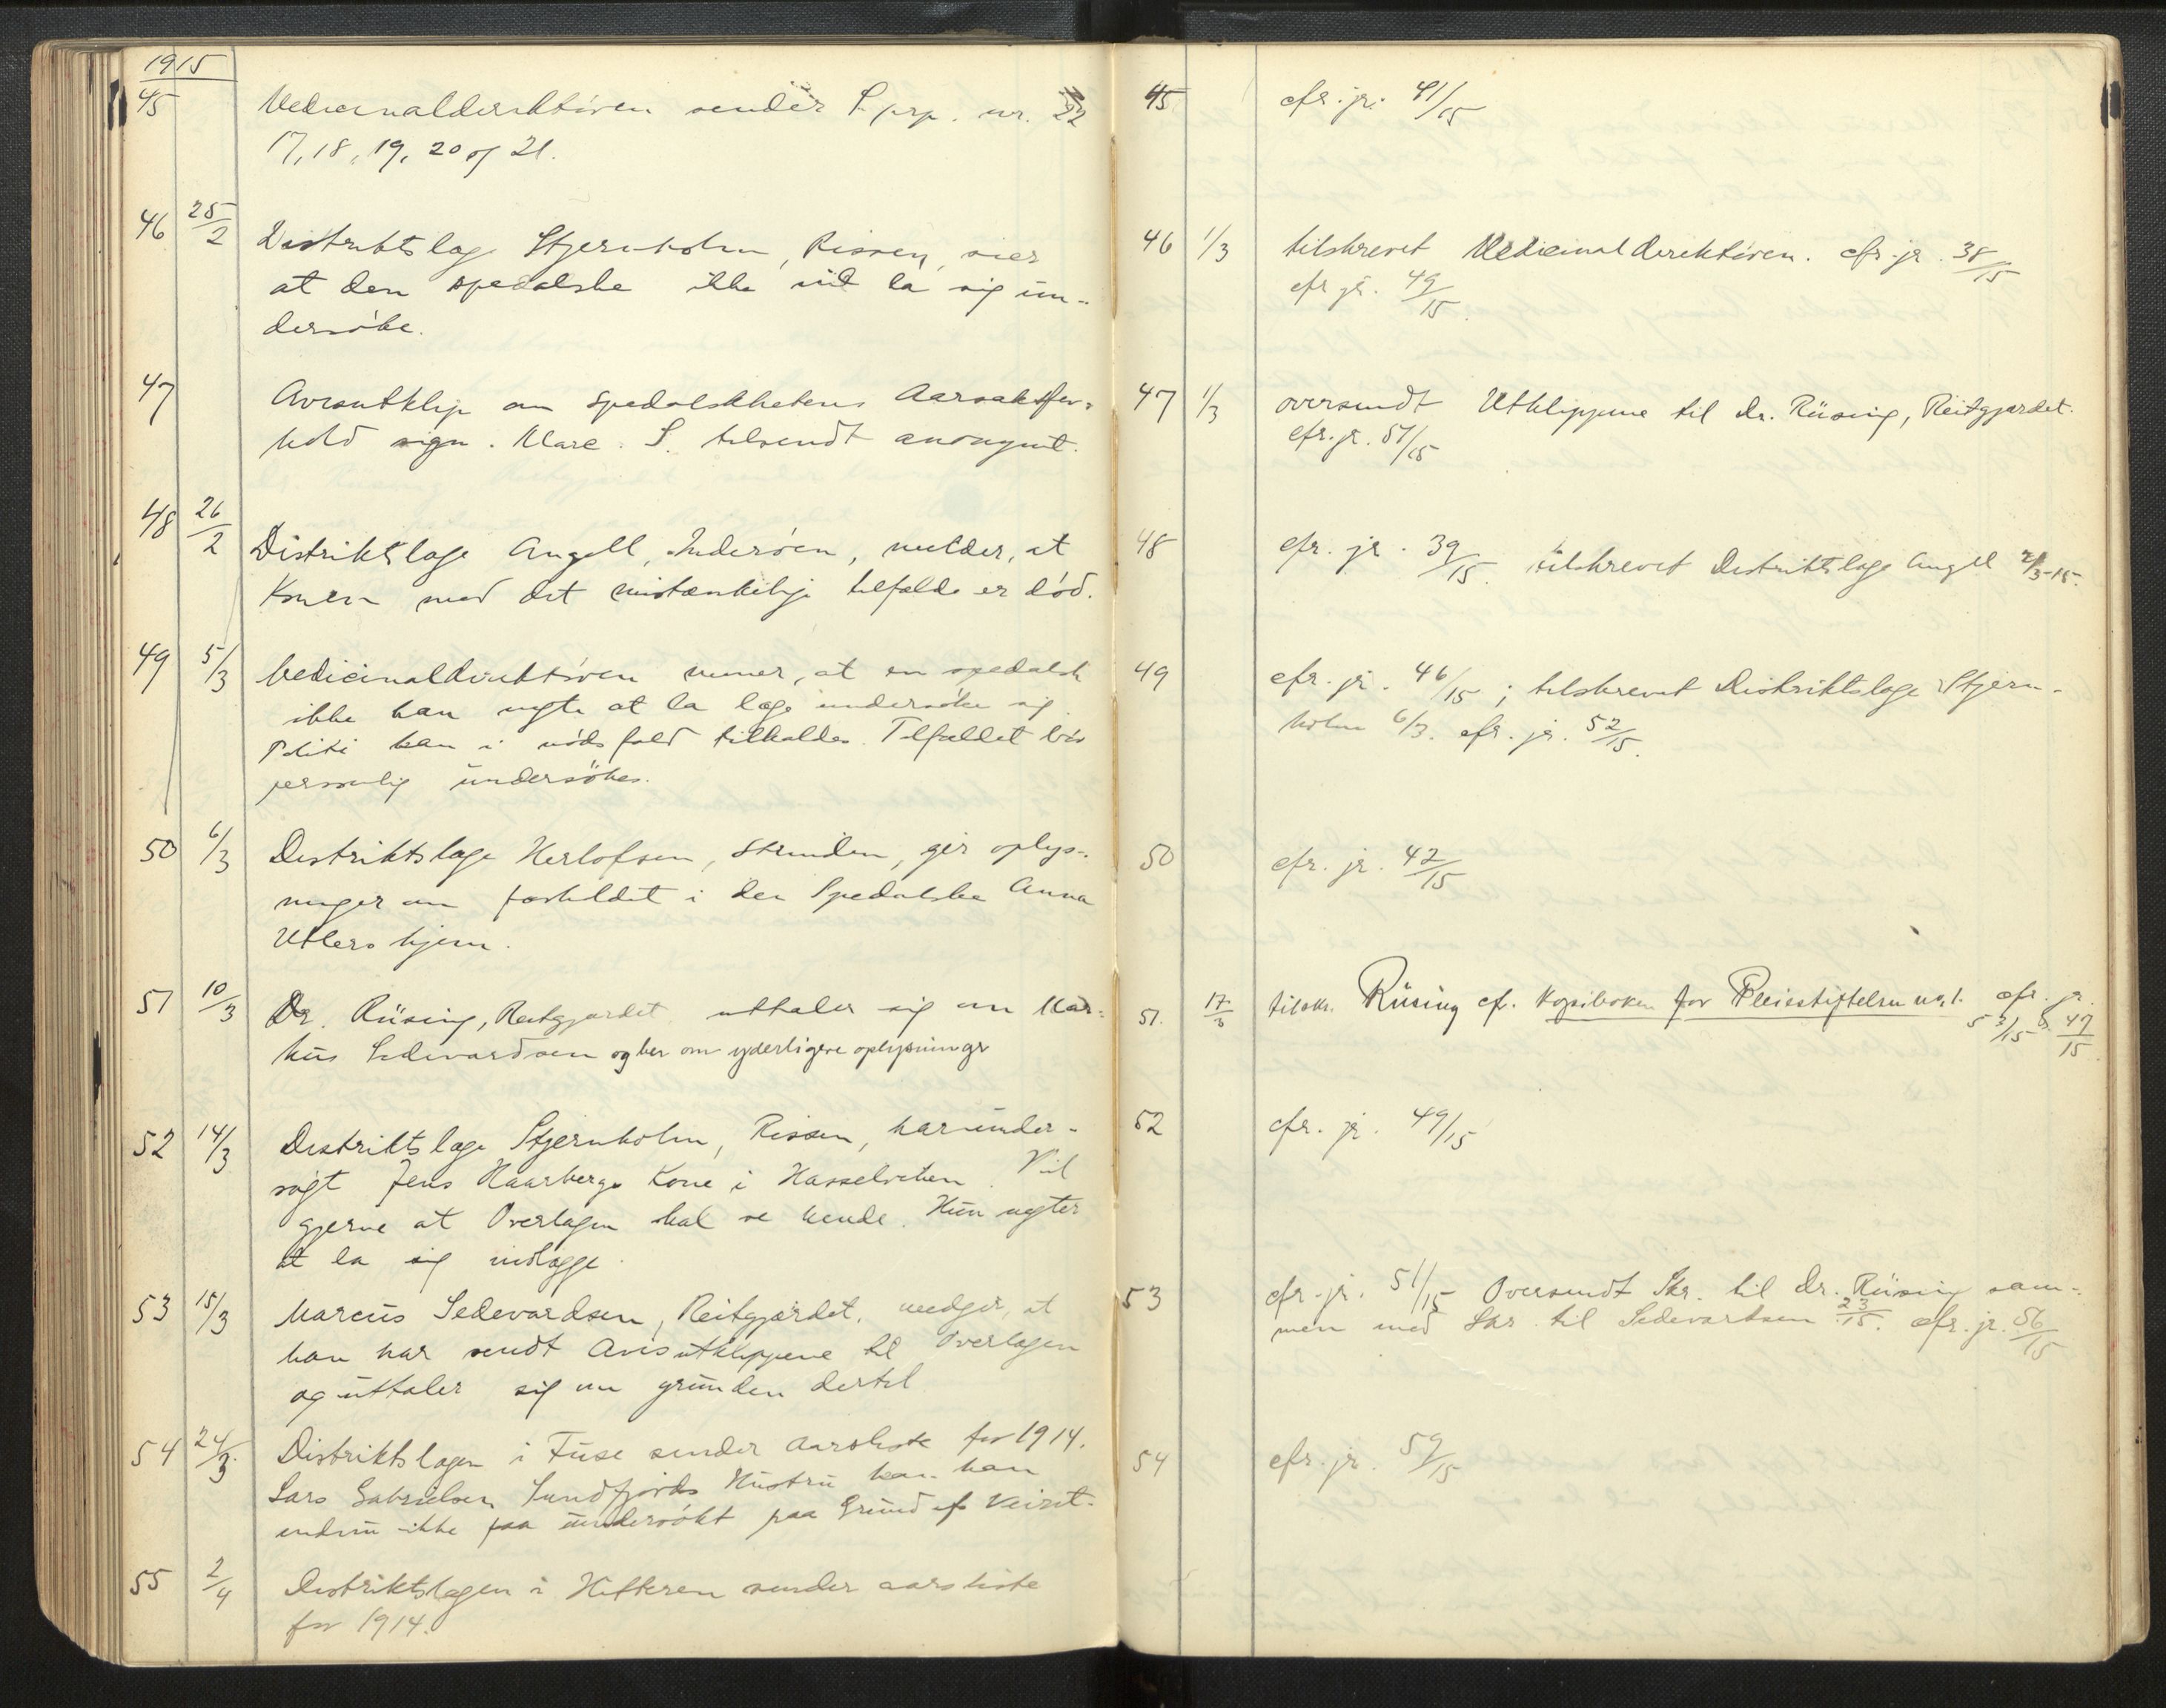 1915
45 Medicinaldirektören sender S. prp. nr. 22
17, 18, 19, 20 og 21.
46 25/2 Distriktslæge Stjernholm, Rissen, sier
at den spedalske ikke vil la sig un-
dersöke.
47 Avisutklip om Spedalskhetens Aarsaksfor-
hold sign. Marc. S. tilsendt anonymt.
48 26/2 Distriktslæge Angell, Inderöen, melder, at
Konen med det mistænkelige tilfælde er död.
49 5/3 Medicinaldirektören mener, at en spedalsk
ikke kan negte at la læge undersöke sig
Politi kan i nödsfald tilkaldes. Tilfældet bör
personlig undersökes.
50 6/3 Distriktslæge Herlofsen, Strinden, gir oplys-
ninger om forholdet i den Spedalske Anna
Utlers hjem.
51 10/3 Dr. Rüsing, Reitgjærdet uttaler sig om Mar-
kus Sedevardsen og ber om yderligere oplysninger
52 14/3 Distriktslæge Stjernholm, Rissen, har under-
sögt Jens Haarbergs Kone i Hasselviken. Vil
gjerne at Overlægen skal se hende. Hun negter
at la sig indlægge.
53 15/3 Marcus Sedevardsen, Reitgjærdet, medgir, at
han har sendt Avisutklippene til Overlægen
og uttaler sig om grunden dertil
54 24/3 Distriktslægen i Fuse sender Aarsliste for 1914.
Lars Gabrielsen Sundfjords Hustru kan han
endnu ikke faa undersökt paa Grund af Veiret.
55 2/4 Distriktslægen i Hitteren sender aarsliste
for 1914.
45 cfr. jr. 41/15
46 1/3 tilskrevet Medicinaldirektören. cfr. jr. 38/15
cfr jr. 49/15.
47 1/3 oversendt Utklippene til Dr. Rüsing, Reitgjærdet.
cfr. jr. 51/15
48 cfr. jr. 39/15. tilskrevet Distriktslæge Angell 2/3-15.
49 cfr. jr. 46/15; tilskrevet Distriktslæge Stjern-
holm 6/3. cfr. jr. 52/15.
50 cfr. jr. 42/15
51. 17/3 tilskr. Rüsing cf. Kopiboken for Pleiestiftelsen nr. 1. cfr. jr.
53/15 & 47/15.
52 cfr. jr. 49/15
53 cfr. jr. 51/15 Oversendt Skr. til Dr. Rüsing sam-
men med Skr til Sedevartsen 23/15. cfr. jr. 56/15
54 cfr. jr. 59/15